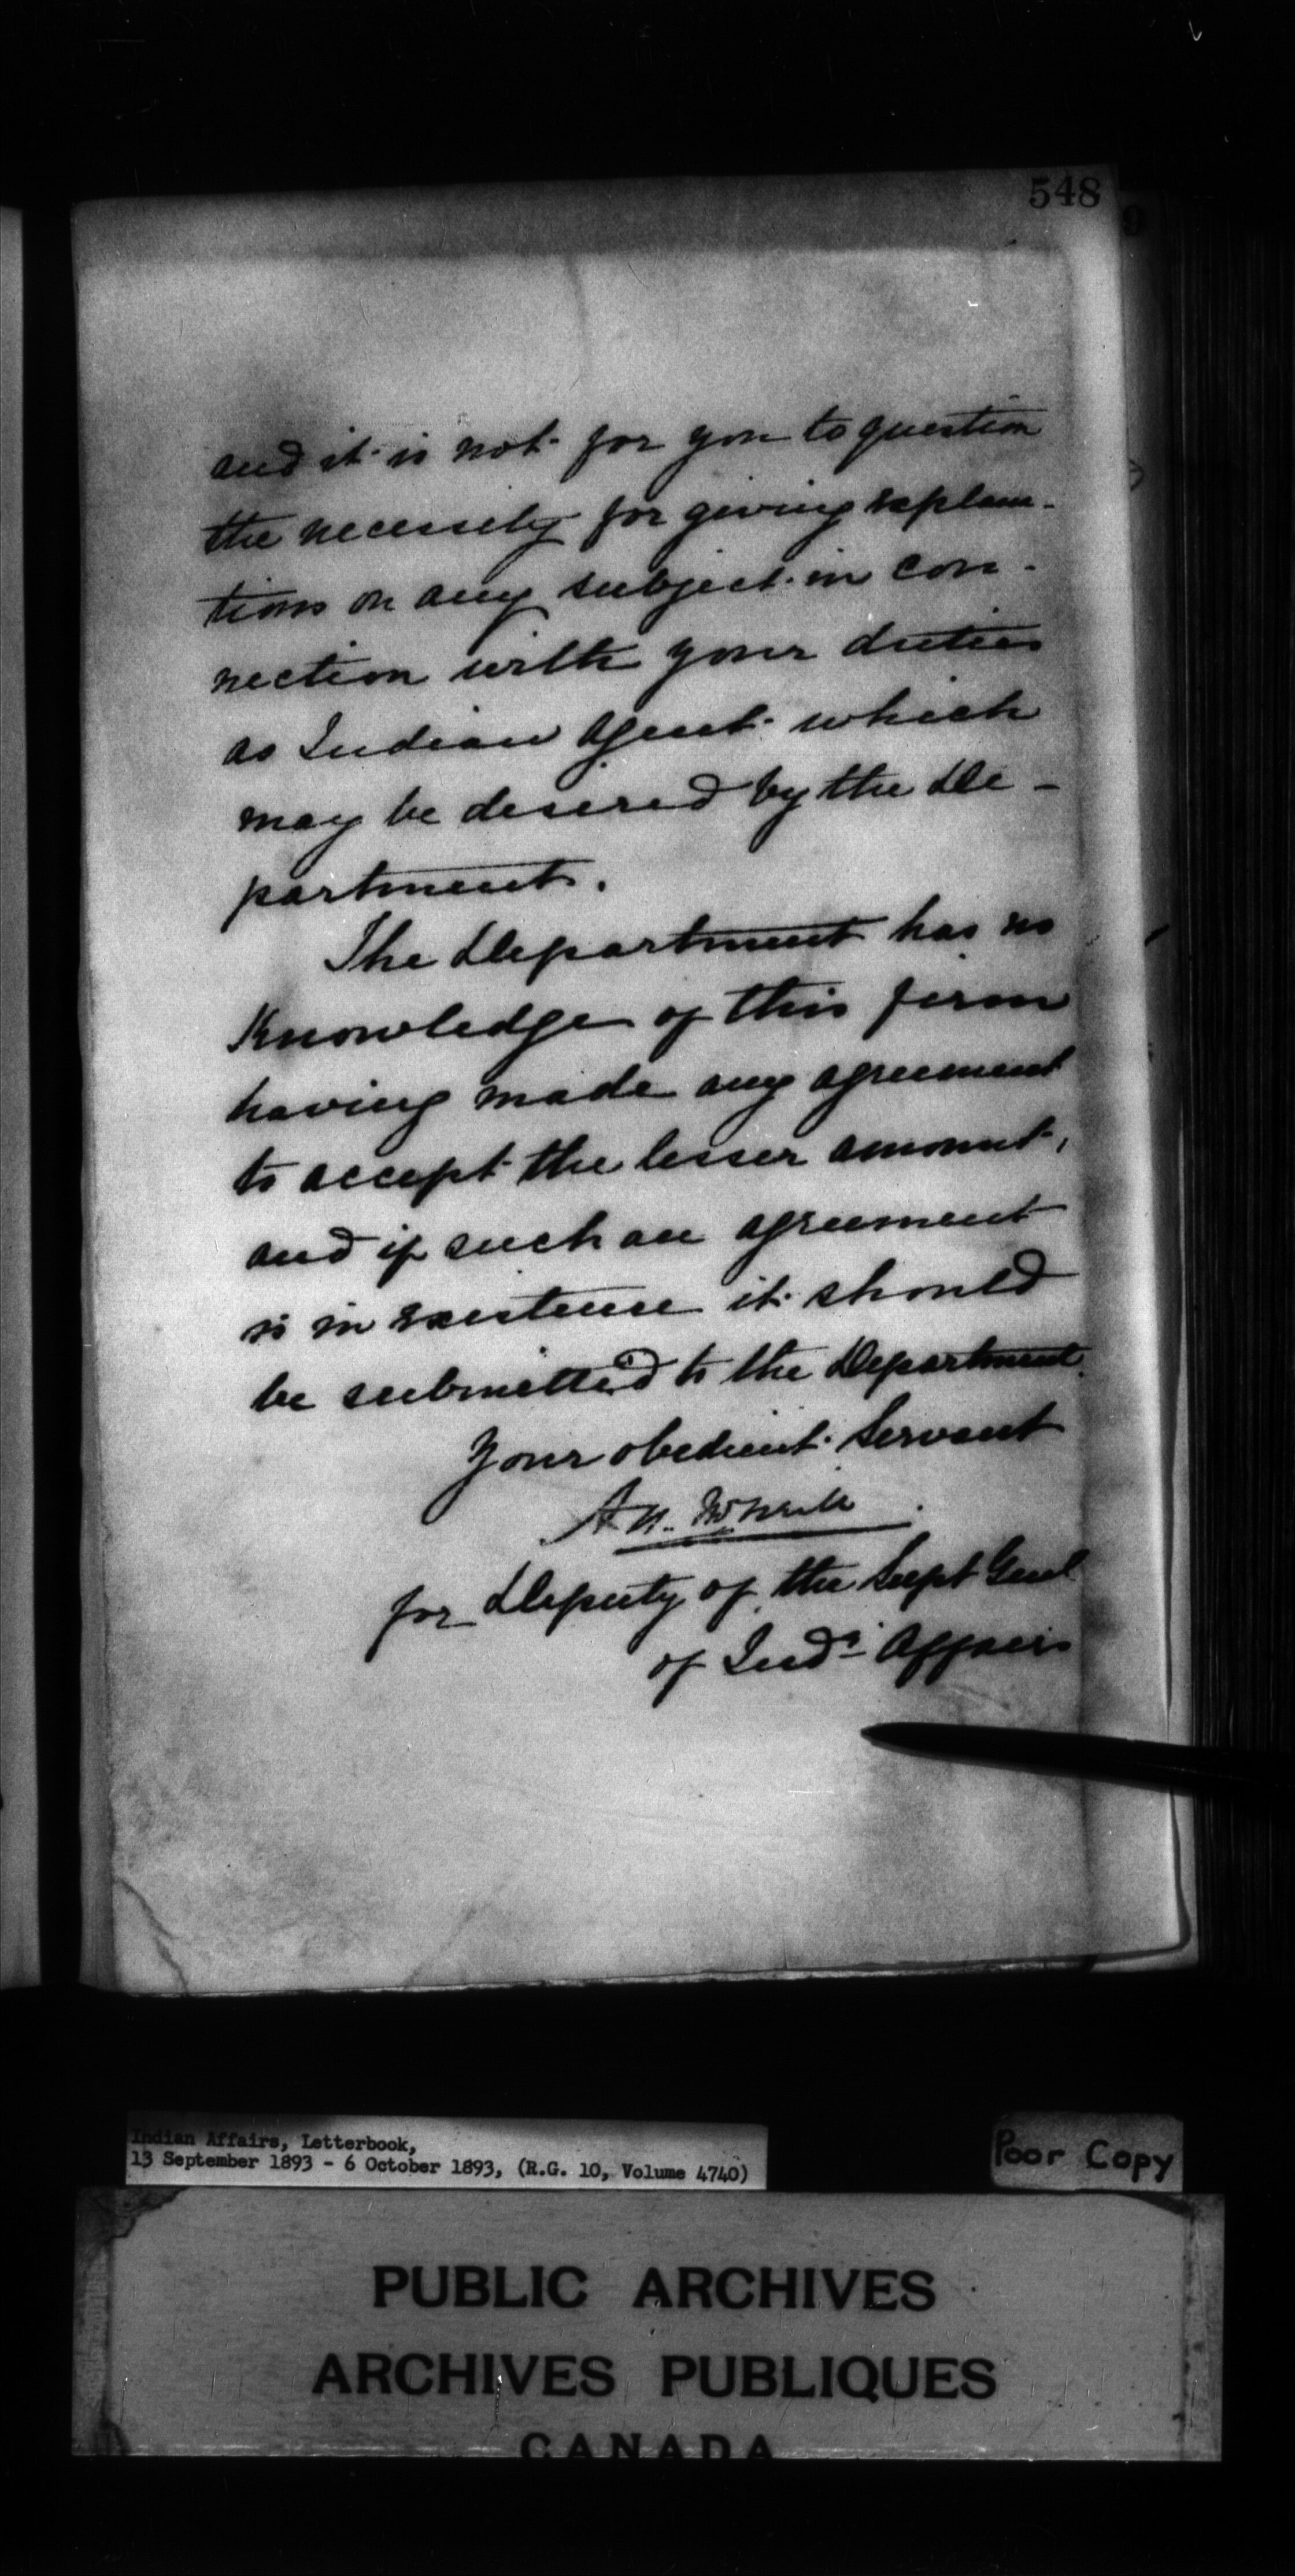 548
and it is not for you to question
the necessity for giving explana-
tions on any subject in con-
nection with your duties
as Indian Agent which
may be desired by the De-
partment.
The Department has no
Knowledge of this firm
having made any agreement
to accept the lesser amount,
and if such an agreement
is in existence it should
be submitted to the Department.
Your obedient Servant
A. N. McNeill
for Deputy of the Supt Genl
of Ind.n Affairs
Indian Affairs, Letterbook,
13 September 1893 - 6 October 1893, (R.G. 10, Volume 4740)
Poor Copy
PUBLIC ARCHIVES
ARCHIVES PUBLIQUES
CANADA